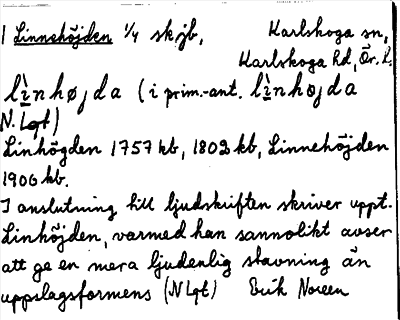 1 Linnehöjden 1/4 skjb, Karlskoga sn,
Karlskoga hd, Ör. l.
lìnhøjda (i prim.-ant. lìnhøjda
N. Lqt)
Linhögden 1757 kb, 1802 kb, Linnehöjden
1906 kb.
I anslutning till ljudskriften skriver uppt.
Linhöjden, varmed han sannolikt avser
att ge en mera ljudenlig stavning än
uppslagsformens (N Lqt) Erik Noreen